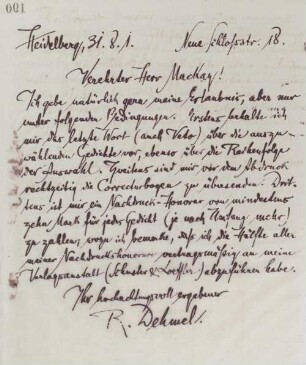 001
Heidelberg, 31.8.1. Neue Schlossstr. 18.
Verehrter Herr Mackay!
Ich gebe natürlich gern meine Erlaubnis, aber nur
unter folgenden Bedingungen. Erstens behalte ich
mir das letzte Wort (auch Veto) über die auszu-
wählenden Gedichte vor, ebenso über die Reihenfolge
der Auswahl. Zweitens sind mir vor dem Abdruck
rechtzeitig die Correcturbogen zu übersenden. Drit-
tens ist mir ein Nachdruck-Honorar von mindestens
zehn Mark für jedes Gedicht (je nach Umfang mehr)
zu zahlen; wozu ich bemerke, daß ich die Hälfte aller
meiner Nachdruckshonorare vertragsmässig an meine
Verlagsanstalt (Schuster & Loeffler) abzuführen habe.
Ihr hochachtungsvoll ergebener
R. Dehmel.